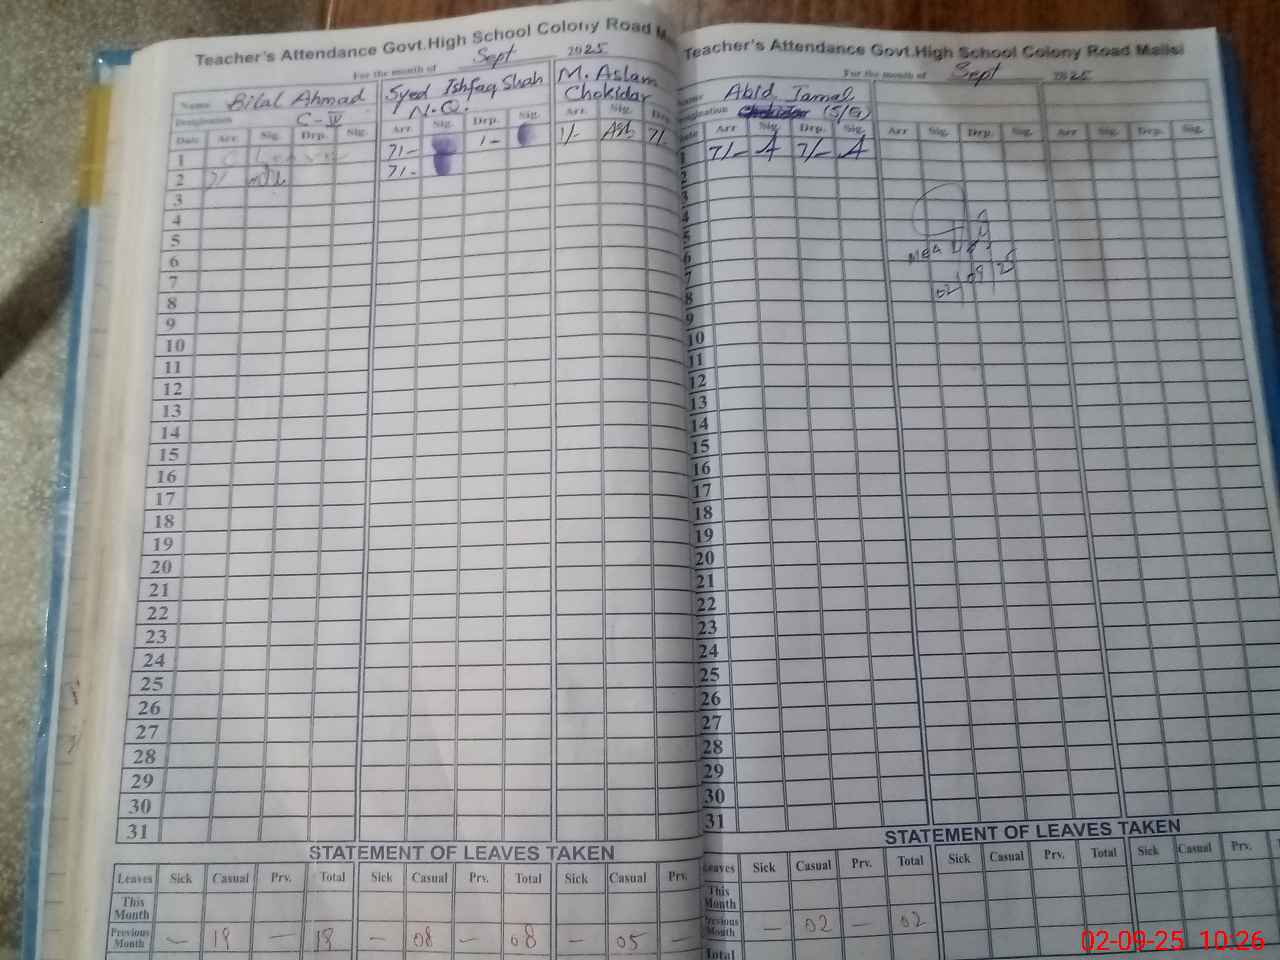 Teacher's Attendance Govt.High School Colony Road
For the month of Sept 2025
Name Bilal Ahmad Syed Ishfaq Shah M. Aslam
Designation C-IV N.Q. Chokidar
Date Arr. Sig. Drp. Sig. Arr. Sig. Drp. Sig. Arr. Sig. Drp.
1 C Leave 7/- 1- 1/- 7/-
2 7/ 7/-
3
4
5
6
7
8
9
10
11
12
13
14
15
16
17
18
19
20
21
22
23
24
25
26
27
28
29
30
31
STATEMENT OF LEAVES TAKEN
Leaves Sick Casual Prv. Total Sick Casual Prv. Total Sick Casual Prv.
This Month
Previous Month - 18 - 18 - 08 - 08 - 05 -
Teacher's Attendance Govt.High School Colony Road Mailsi
For the month of Sept 2025
Name Abid Jamal
Designation (S/G)
Date Arr Sig. Drp. Sig. Arr Sig. Drp. Sig. Arr Sig. Drp. Sig.
1 7/- A 7/- A
2
3
4
5
6
MEA
7
02/09/25
8
9
10
11
12
13
14
15
16
17
18
19
20
21
22
23
24
25
26
27
28
29
30
31
STATEMENT OF LEAVES TAKEN
Leaves Sick Casual Prv. Total Sick Casual Prv. Total Sick Casual Prv. Total
This Month
Previous Month - 02 - 02
Total
02-09-25 10:26